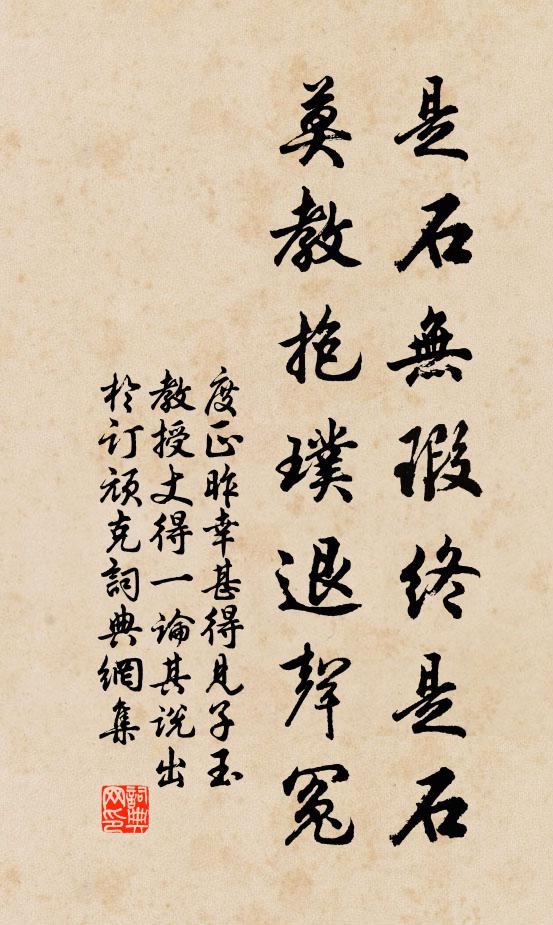 是石無瑕終是石
莫教抱璞退聲冤
度正昨幸甚得見子玉
教授丈得一論其説出
於订頑克詞典網集
詞典网印